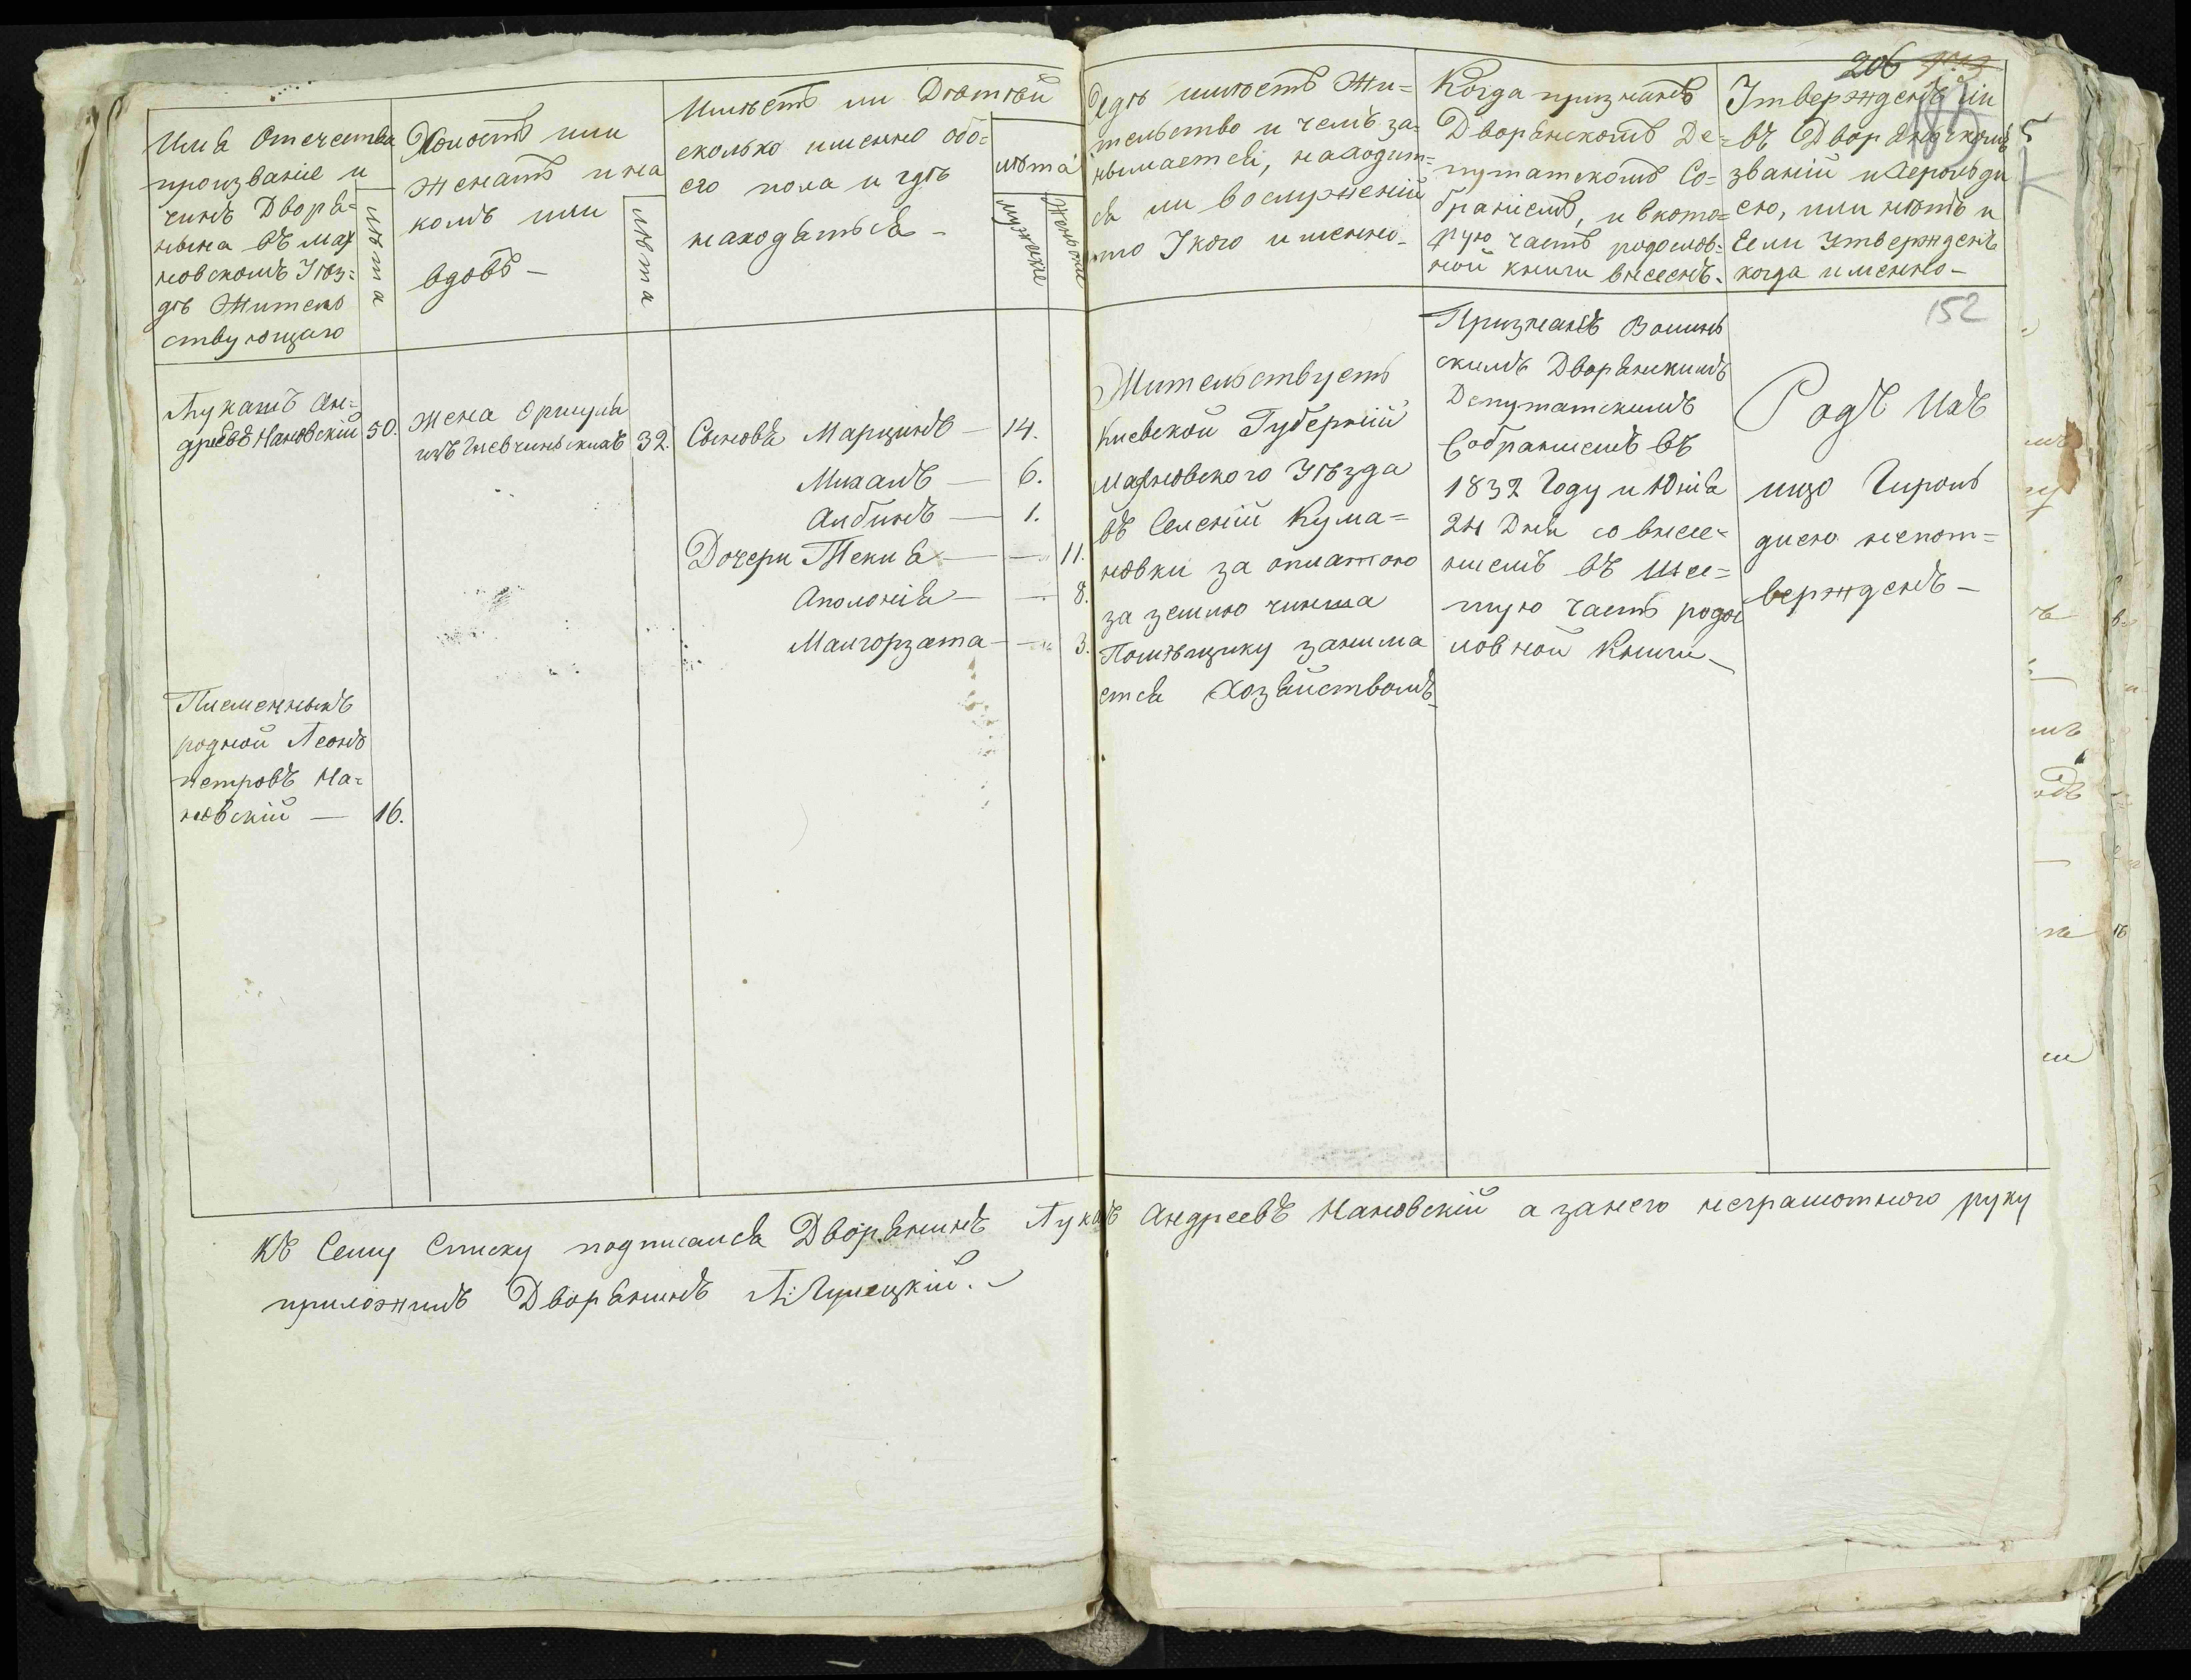 206
152
Имя Отечества
прозваніе и
чинъ Дворя=
нина въ мах
новскомъ Уѣз=
дѣ Жителъ
ствующаго
Лѣта
Холостъ или
женатъ и на
комъ или
вдовъ —
Лѣта
Имѣетъ ли Дѣтѣй
сколько именно обо=
его пола и гдѣ
находяться —
лѣта
мужеске
женьске
Гдѣ имѣетъ Жи=
тельство и чемъ за=
нымается, находит=
ся ли вослуженіи
то Укого именно —
Когда признанъ
Дворянскомъ Де=
путатскомъ Со=
браніемъ, и вкото=
рую часть родослов=
ной книги внесенъ.
Утвержденъ ли
въ Дворянскомъ
званіи и Герольди
ею, или нѣтъ и
Если Утвержденъ
когда именно —
Лукашъ Ан=
дреевъ Нановскій 50.
жена Оршуля
изъ Гневчинскихъ 32.
Сыновя Марцинъ — 14.
Михалъ — 6.
Албинъ — 1.
Дочери Текля — 11.
Аполонія — 8.
Малгорзата — 3.
Жительствуетъ
Киевской Губерніи
Махновского Уѣзда
въ Селеніи Кума=
новки за оплатою
за землю чинша
Помѣщику занима
ется Хозяйствомъ
Признанъ Волинь
скимъ Дворянскимъ
Депутатскимъ
Собраниемъ въ
1832 Году и Юнія
24 Дня со внесе=
ниемъ въ Шес=
тую часть родос
ловной Книги —
Родъ Ихъ
ищо Гироль
диею непот=
вержденъ —
Племенныкъ
родной Леонъ
петровъ На=
новскій — 16.
Къ Сему Списку подписался Дворянинъ Лукашъ Андреевъ Нановскій а занего неграмотного руку
приложилъ Дворянинъ